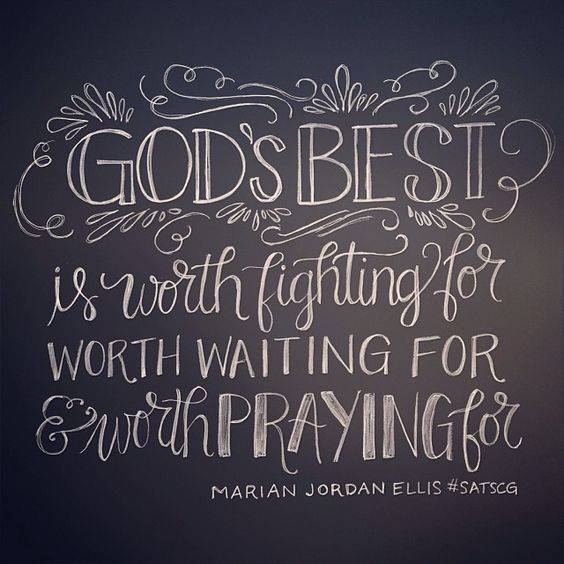 GOD'S BEST
is worth fighting for
WORTH WAITING FOR
& worth PRAYING for
MARIAN JORDAN ELLIS #SATSCG